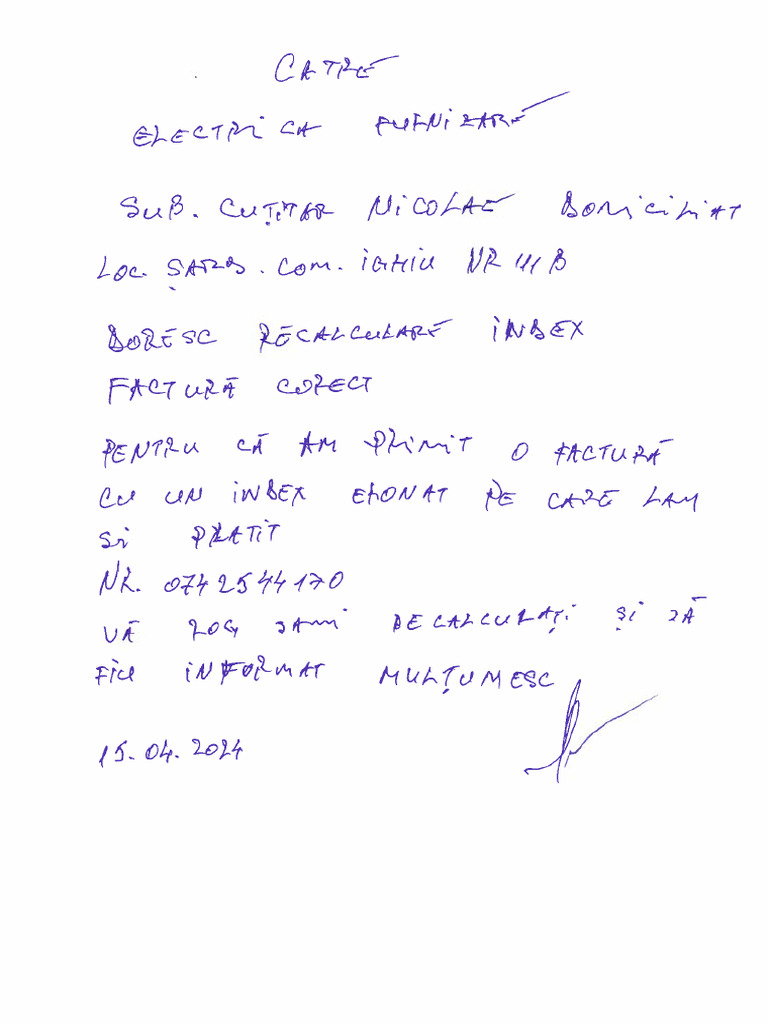 CATRE
ELECTRICA FURNIZARE
SUB. CUȚITAR NICOLAE DOMICILIAT
LOC. ȘARD. COM. IGHIU NR 111 B
DORESC RECALCULARE INDEX
FACTURĂ CORECT
PENTRU CĂ AM PRIMIT O FACTURĂ
CU UN INDEX ERONAT PE CARE LAM
SI PLATIT
NR. 0742544170
VĂ ROG SAMI RECALCULAȚI ȘI SĂ
FIU INFORMAT MULȚUMESC
15.04.2024